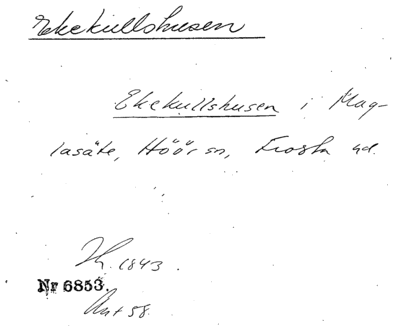 Ekekullshusen
Ekekullshusen i Mag-
lasäte, Höörsn, Frosta hd.
1843.
Nr 6853.
Ant 58.